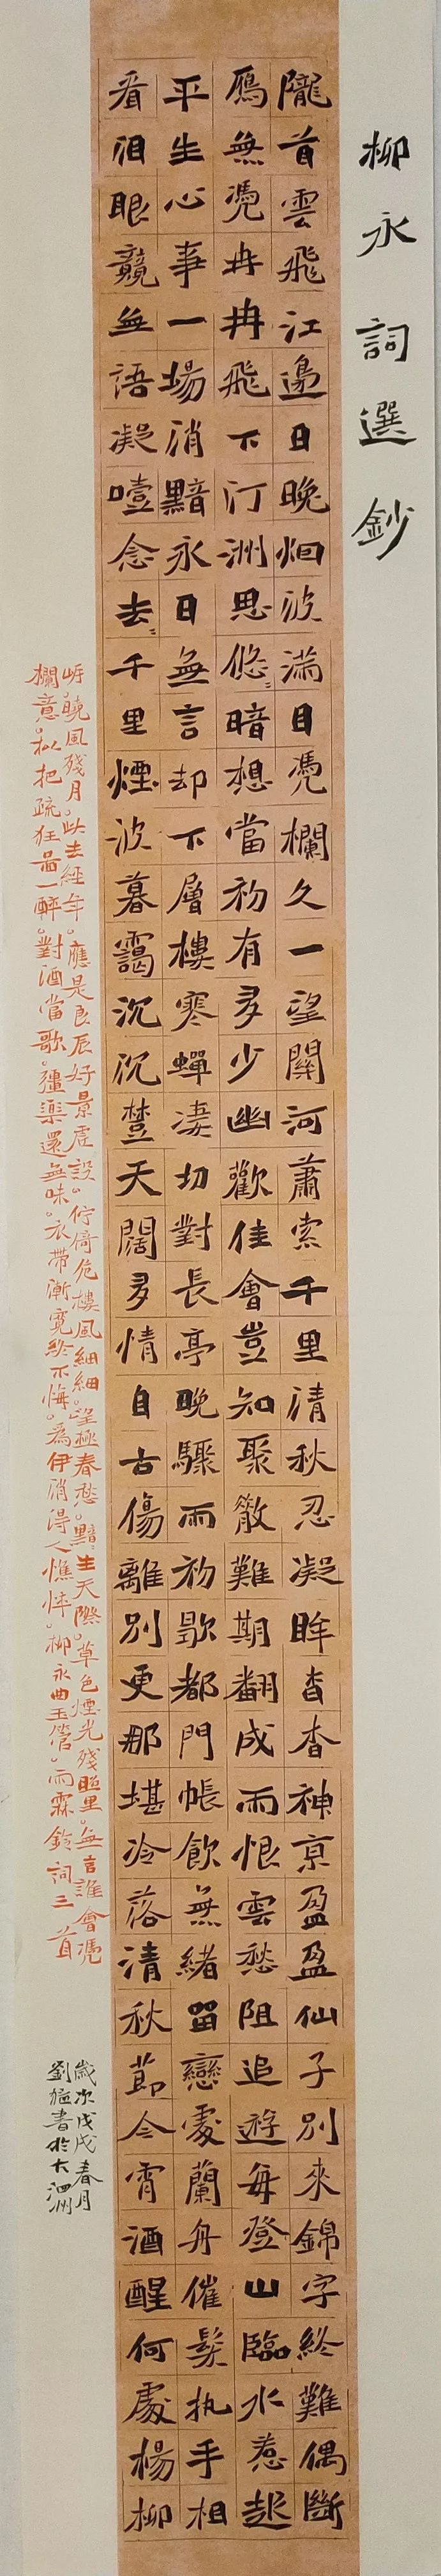 柳永詞選鈔
隴首雲飛江邊日晚烟波滿目凭欄久一望關河蕭索千里清秋忍凝眸杳杳神京盈盈仙子別來錦字終難偶斷
鴈無凭冉冉飛下汀洲思悠〻暗想當初有多少幽歡佳會豈知聚散難期翻成雨恨雲愁阻追遊每登山臨水惹起
平生心事一場消黯永日無言却下層樓寒蟬淒切對長亭晚驟雨初歇都門帳飲無緒留戀處蘭舟催發执手相
看泪眼競無語凝噎念去〻千里煙波暮靄沉沉楚天闊多情自古傷離別更那堪冷落清秋節今宵酒醒何處楊柳
岸。曉風殘月。此去經年。應是良辰好景虛設。佇倚危樓風細細。望極春愁。黯〻生天際。草色煙光殘照里。無言誰會凭
欄意。拟把疏狂圖一醉。對酒當歌。彊樂還無味。衣帶漸寬終不悔。為伊消得人憔悴。柳永曲玉管。雨霖鈴詞三首
歲次戊戌春月
劉猛書於大泗洲